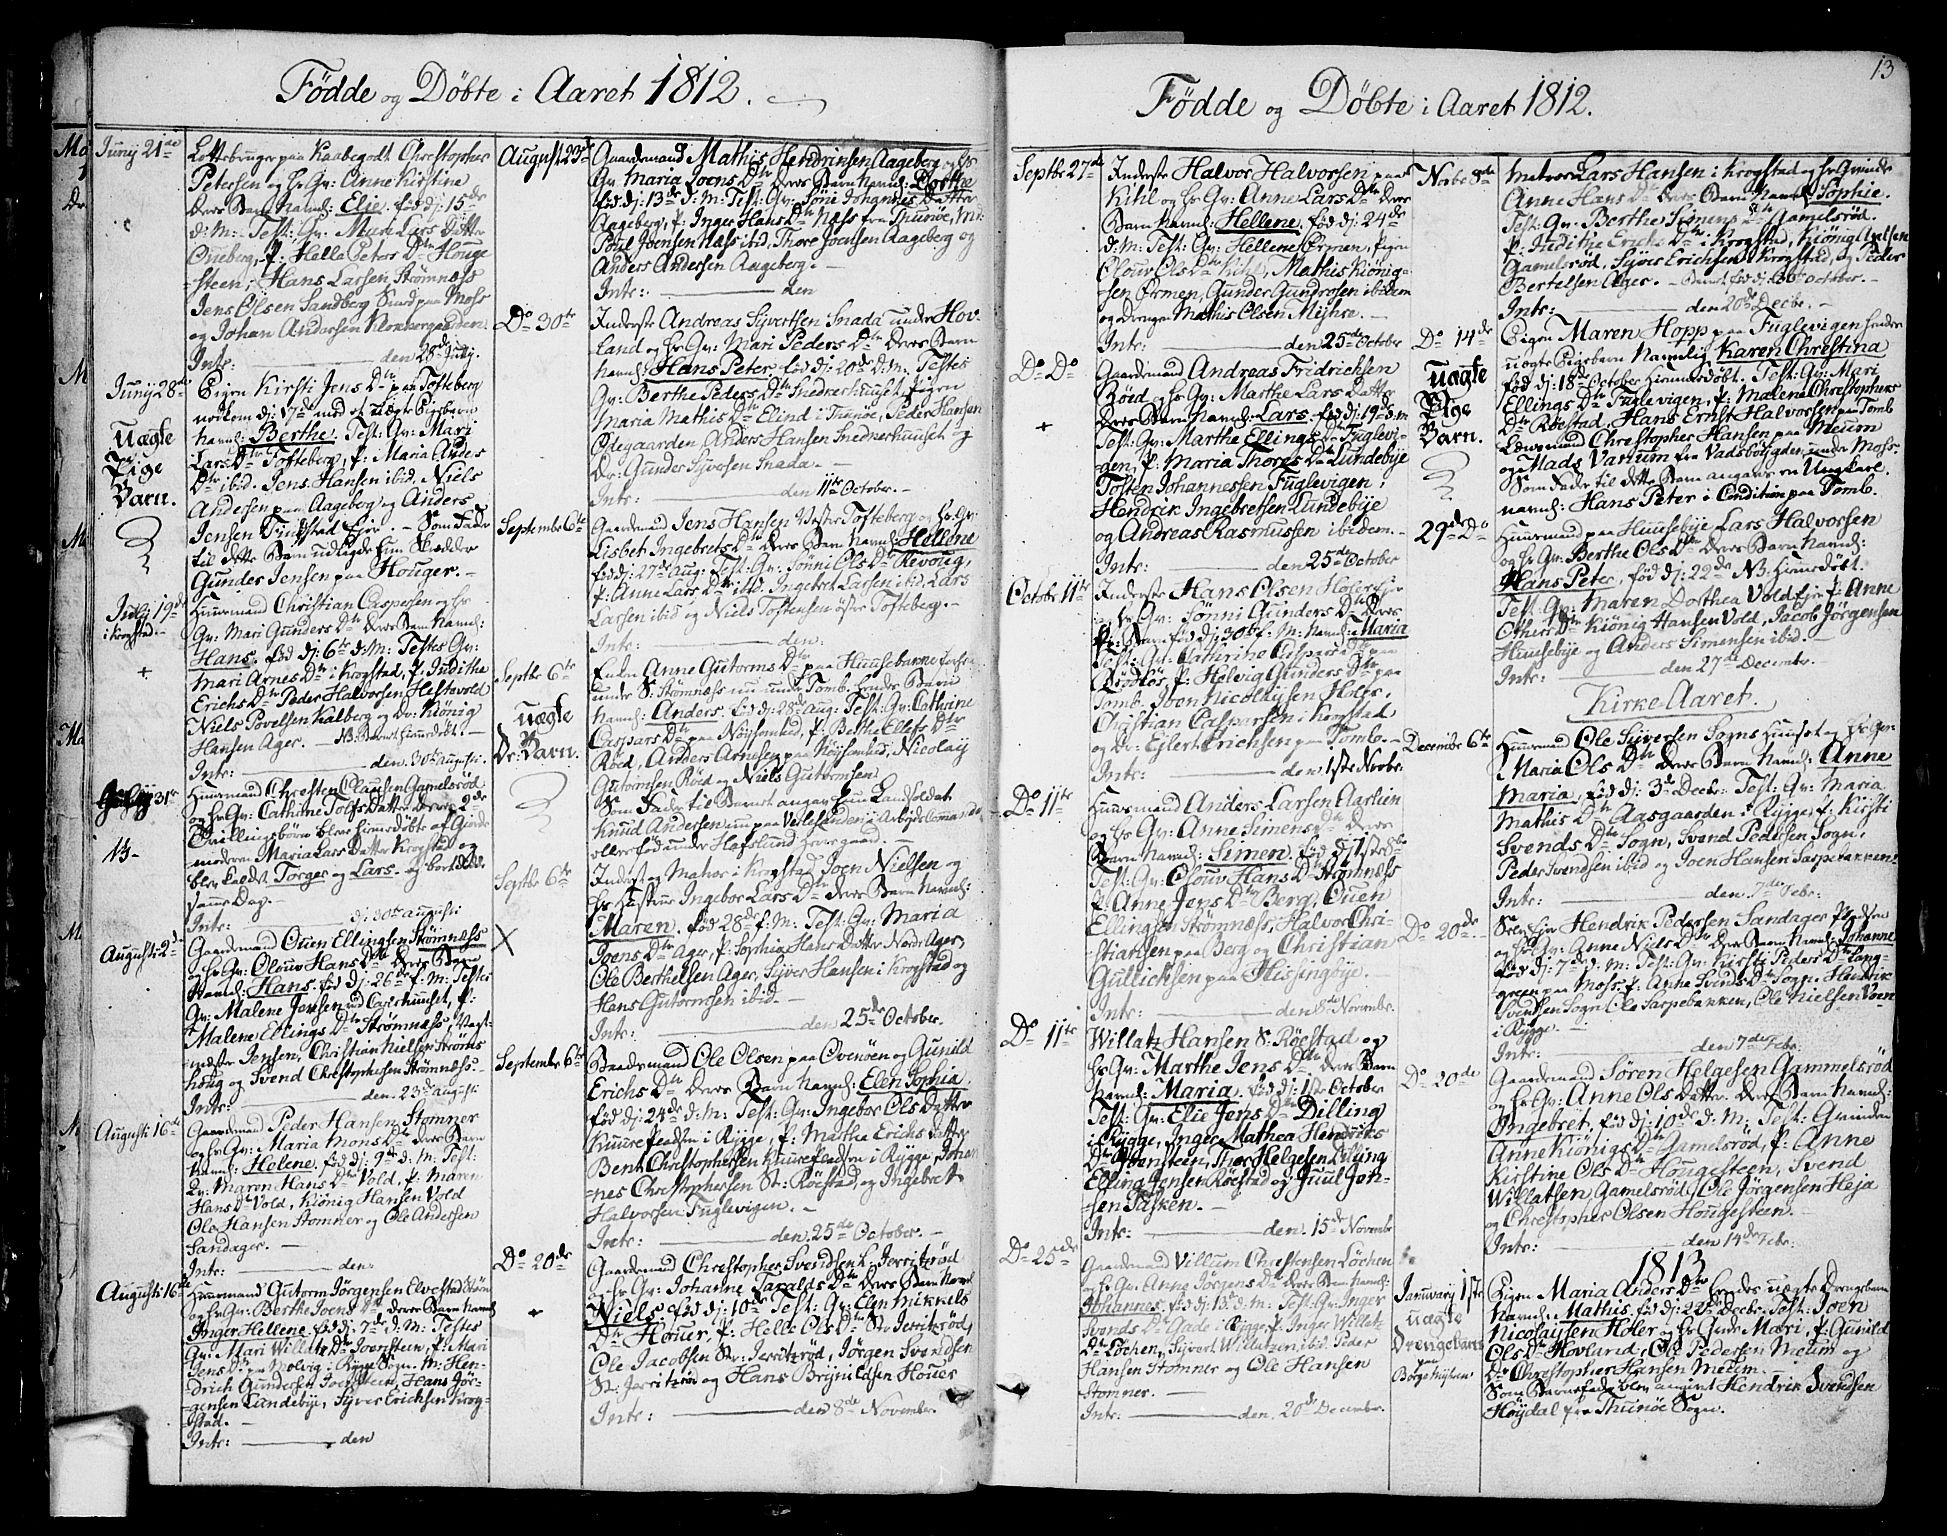 Födde og Döbte i Aaret 1812.
Juny 21de
Petersen og hs Qv: Anne Kirstine
deres Barn Navnl: Elie, föd dj: 15de
d: M: Test: Qv: Maren Lars Datter
P: Helle Peters Dtr Houge
steen, Hans Larsen Strömnæss
Jens Olsen Sandberg Smed paa Moss
og Johan Andersen
Intr: den 28de July.
Juny 28de
Pigen Kirsti Jens Dtr paa Tofteberg
nedkom dj: 17de med et uægte Pigebarn
uægte
Pige
Barn.
Navnl: Berthe. Test: Qv: Mari
Lars Dtr Tofteberg, P: Maria Anders
Dtr ibid. Jens Hansen ibid, Niels
Andersen paa Aageberg og Anders
Jensen
til dette Barn udlagde hun Skrædder
Gunder Jensen paa Houger.
July 19de
i Krogstad
Huusmand Christian Caspersen og hs
Qv: Mari Gunders Dtr deres Barn Navnl:
Hans, föd dj: 6te d: M: Testes Qv:
Mari Arnes Dtr i Krogstad, P: Juditha
Erichs Dtr Peder Halvorsen Hestevold
Niels Povelsen Kalberg og Dr: Kiönig
Hansen Ager. NB: Barnet hiemmedöbt.
Intr: den 30te Augusti.
31te
Huusmand Christen Clausen Gamelsröd
og hs Qv: Cathrine Tolfs Datter deres 2de
Tvillingebörn blev hiemmedöbte af Giorde
moderen Maria Lars Datter Krogstad og
blev kaldet Torger og Lars. og bortdöde
samme Dag.
Intr: dj: 30te Augusti
Augusti 2de
Gaardemand Ouen Ellingsen Strömnæss
og hs Qv: Olouv Hans Dtr deres Barn
Navnl: Hans, föd dj: 26de f: M: Testes
Qv: Malene Jensen Casterhuuset, P:
Malene Ellings Dtr Strömnæss,
Jensen, Christian Nielsen Ströms
houg og Svend Christophersen Strömnæss.
Intr: den 23de Augusti
Augusti 16de
Gaardemand Peder Hansen Stomner
og hs Qv: Maria Mons Dtr deres Barn
Navnl: Helene, föd dj: 9de d: M: Test:
Qv: Maren Hans Dtr Vold, P: Maren
Hans Dtr Vold, Kiönig Hansen Vold
Ole Hansen Stomner og Ole Andersen
Sandager.
Intr: den
Augusti 16de
Huusmand Gutorm Jörgensen
og hs Qv: Berthe Joens Dtr deres Barn Navnl:
Inger Hellene, föd dj: 7de d: M: Testes
Qv: Mari Willatz Dtr Iversteen, P: Mari
Jens Dtr paa Molvig i Rygge Sogn. M: Hen-
drich Gundersen Iversteen, Hans Jör-
gensen Lundebye, Syver Erichsen Krog-
stad.
Intr: den
August 23de
Gaardemand Mathis Hendrichsen Aageberg og hs
Qv: Maria Joens Dtr deres Barn Navnl: Berthe
föd dj: 13de d: M: Test: Qv: Jöne Johannes Datter
Aageberg, P: Inger Hans Dtr Næss fra Thunöe, M:
Povl Joensen Næss ibid, Thore Joensen Aageberg og
Anders Andersen Aageberg.
Intr: den
Do 30te
Inderste Andreas Syvertsen Snada under Hov-
land og hs Qv: Mari Peders Dtr deres Barn
Navnl: Hans Peter, föd dj: 20de d: M: Testes
Qv: Berthe Peders Dtr Snedkerhuuset, Pigen
Maria Mathis Dtr Elind i Thunöe, Peder Hansen
Ödegaarden, Anders Hansen Snedkerhuuset og
Dr: Gunder Syversen Snada.
Intr: den 11te October.
Septembr 6te
Gaardemand Jens Hansen Vester Tofteberg og hs Qv:
Lisbet Ingebrets Dtr deres Barn Navnl: Hellene
föd dj: 27de Aug: Test: Qv: Jonni Ols Dtr Revoug,
P: Anne Lars Dtr ibid. Ingebret Larsen ibid, Lars
Larsen ibid og Niels Tostensen öster Tofteberg.
Intr: den.
Septbr 6te
uægte
Dr: Barn.
Enken Anne Gutorms Dtr paa Huusebanne
under S: Strömnæss nu under Tomb. hendes Barn
Navnl: Anders, föd dj: 28de Aug: Test: Qv: Cathrine
Caspars Dtr paa Nöysomhed, P: Berthe Ellefs Dtr
Röed, Anders Arnesen paa Nöysomhed, Nicolay
Gutormsen Röd og Niels Gutormsen
Som Fader til Barnet angav hun Landsoldat
Knud Andersen nu paa Valöesanden i Arbeyds Comando
eller föd under Hafslund Herregaard.
Septbr 6te
Inderst og Mator i Krogstad Joen Nielsen og
hs Hustrue Ingebor Lars Dtr deres Barn Navnl:
Maren, föd 28de f: M: Test: Qv: Maria
Joens Dtr Ager, P: Sophia Hans Datter Nordr Ager,
Ole Berthelsen Ager, Syver Hansen i Krogstad og
Hans Gutormsen ibid.
Intr: den 25de October.
September 6te
Baadsmand Ole Olsen paa Ovenöen og Gunild
Erichs Dtr deres Barn Navnl: Elen Sophia,
föd dj: 24de d: M: Test: Qv: Ingebor Ols Datter
i Rygge, P: Marthe Erichs Datter
Bent Christophersen i Rygge, Johan-
nes Christophersen St: Röestad, og Ingebret
Halvorsen Fuglevigen.
Intr: den 25de October.
Do 20de
Gaardemand Christopher Svendsen L: Jerritzröd
og hs Qv: Johanne Taralds Dtr deres Barn Navnl:
Niels, föd dj: 10de Test: Qv: Elen Mikkels
Dtr Houer, P: Helle Ols Dtr Str Jerritzröd,
Ole Jacobsen Str: Jerritzröd, Jörgen Svendsen
St: Jerritzröd og Hans Brynildsen Houer
Intr: den 8de November.
13
Födde og Döbte i Aaret 1812.
Septbr 27de
Inderste Halvor Halvorsen paa
Kihl og hs Qv: Anne Lars Dtr deres
Barn Navnl: Hellene, föd dj: 24de
d: M: Test: Qv: Hellene Örmen, Pigen
Olouv Ols Dtr Kihl, Mathis Kiönig-
sen Örmen, Gunder Gundrosen ibidem
og Drengen Mathis Olsen Myhre.
Intr: den 25de October
Do Do
Gaardemand Andreas Fridrichsen
Röed og hs Qv: Marthe Lars Datter
deres Barn Navnl: Lars, föd dj: 19de d: M
Test: Qv: Marthe Ellings Dtr Fuglevi-
gen, P: Maria Thores Dtr Lundebye
Tosten Johannessen Fuglevigen,
Hendrik Ingebretsen Lundebye
og Andreas Rasmussen ibidem.
Intr: den 25de October
Octobr 11te
Inderste Hans Olsen Holer
og hs Qv: Jönni Gunders Dtr deres
Barn föd dj: 30te f: M: Navnl: Maria
Test: Qv: Cathrine Caspers Dtr paa
Brödlös, P: Helvig Gunders Dtr paa
Tomb. Sven Nicolaysen Holer,
Christian Caspersen i Krogstad
og Dr: Ejlert Erichsen paa Tomb.
Intr: den 1ste Novbr:
Do 11te
Huusmand Anders Larsen Aarlien
og hs Qv: Anne Simens Dtr deres
Barn Navnl: Simen, föd dj: 1ste
Test: Qv: Olouv Hans Dtr Strömnæss
P: Anne Jens Dtr Berg, Ouen
Ellingsen Strömnæss, Halvor Chri-
stiansen paa Berg og Christian
Gullichsen paa Hissingbye.
Intr: den 8de November.
Do 11te
Willatz Hansen S: Röestad og
hs Qv: Marthe Jens Dtr deres Barn
Navnl: Maria, föd dj: 1ste October
Test: Qv: Elie Jens Dtr Dilling
i Rygge, Inger Mathea Hendriks
Dtr Iversteen, Thore Helgesen Dilling
Elling Jensen Röestad og Juul Jen-
sen Tasken.
Intr: den 15de Novembr
Do 25de
Gaardemand Villum Christensen Löchen
og hs Qv: Anne Jörgens Dtr deres Barn Navnl:
Johannes, föd dj: 15de d: M: Test: Qv: Inger
Svends Dtr Gade i Rygge, P: Inger Willatz
Dtr Löchen, Syvert Willatzen ibid. Peder
Hansen Stomner og Ole Hansen
Stomner.
Intr: den 20de December.
Novbr 8de
Mator Lars Hansen i Krogstad og hs Qvinde
Anne Hans Dtr deres Barn Navnl: Sophie.
Test: Qv: Berthe Simens Dtr Gamelsröd.
P: Judithe Erichs Dtr i Krogstad, Kiönig Axelsen
Gamelsröd, Syver Erichsen i Krogstad, og Peder
Bertelsen Ager. Barnet föd dj: 30te October.
Intr: den 20de Decbr.
Do 14de
uægte
Pige
Barn.
Pigen Maren Hopp paa Fuglevigen hendes
uægte Pigebarn Navnlig Karen Christina
föd dj: 18de October hiemmedöbt. Test: Qv: Mari
Ellings Dtr Fuglevigen, P: Malene Christophers
Dtr Röestad, Hans Ernst Halvorsen paa Tomb
Christopher Hansen paa Meum
og Mads Vanum fra Vadsbögden under Moss.
Som Fader til dette Barn angaves en Ungkarl
navnl: Hans Peter i Condition paa Tomb.
29de Do
Huusmand paa Huusebye Lars Halvorsen
og hs Qv: Berthe Ols Dtr deres Barn Navnl:
Hans Peter, föd dj: 22de NB. hiemmedöbt.
Test: Qv: Maren Dorthea Vold Eje P: Anne
Others Dtr Kiönig Hansen Vold, Jacob Jörgensen
Huusebye og Anders Simensen ibid.
Intr: den 27de December.
Kirke-Aaret.
Decembr 6te
Huusmand Ole Siversen Sogns Huuset og hs Qv:
Maria Ols Dtr deres Barn Navnl: Anne
Maria, föd dj: 3de Decbr: Test: Qv: Maria
Mathis Dtr Aasgaarden i Rygge, P: Kirsti
Svends Dtr Sogn, Svend Pedersen Sogn,
Peder Svendsen ibid og Joen Hansen Sarpebakken.
Intr: den 7de Febr.
Do 20de
Hendrik Pedersen Sandager
og hs Qv: Anne Niels Dtr deres Barn Navnl: Johanne
föd dj: 7de d: M: Test: Qv: Kirsti Peders Dtr Lang-
green paa Moss. P: Anne Svends Dtr Sogn. Hendrik
Svendsen Sogn, Ole Sarpebakken, Ole Nielsen Voen
i Rygge.
Intr: den 7de Febr:
Do 20de
Gaardemand Sören Helgesen Gammelsröd
og hs Qv: Anne Ols Datter deres Barn Navnl:
Ingebret, föd dj: 10de d: M: Test: Qvinden
Anne Kiönigs Dtr Gamelsröd, P: Anne
Kirstine Ols Dtr Hougesteen, Svend
Willatsen Gamelsröd, Ole Jörgensen Heja
og Christopher Olsen Hougesteen.
Intr: den 14de Febr:
1813
January 1ste
uægte
Drengebarn
paa
Pigen Maria Anders Dtr hendes uægte Drengebarn
Navnl: Mathis, föd dj: 22de Decbr. Test: Joen
Nicolaysen Holer og hs Qvde Mari, P: Gunild
Ols Dtr Hovland, Ole Pedersen Meum og
Dr Christopher Hansen Meum.
Som Barnefader blev angivet Hendrik Svendsen
Höydal fra Thunöe Sogn.